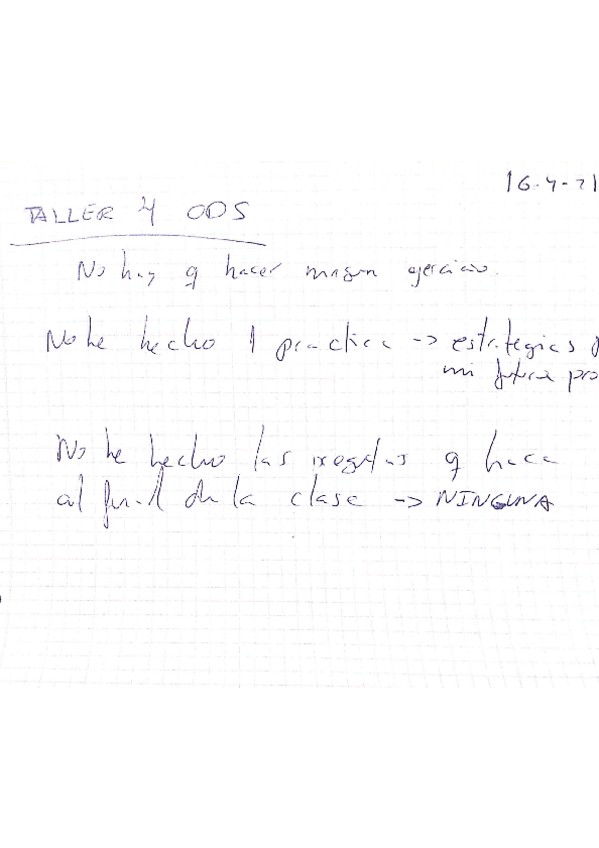 16-4-21
TALLER 4 ODS
No hay q hacer ningun ejercicio.
No he hecho 1 practica -> estrategias
mi futura pro
No he hecho las q hace
al final de la clase -> NINGUNA